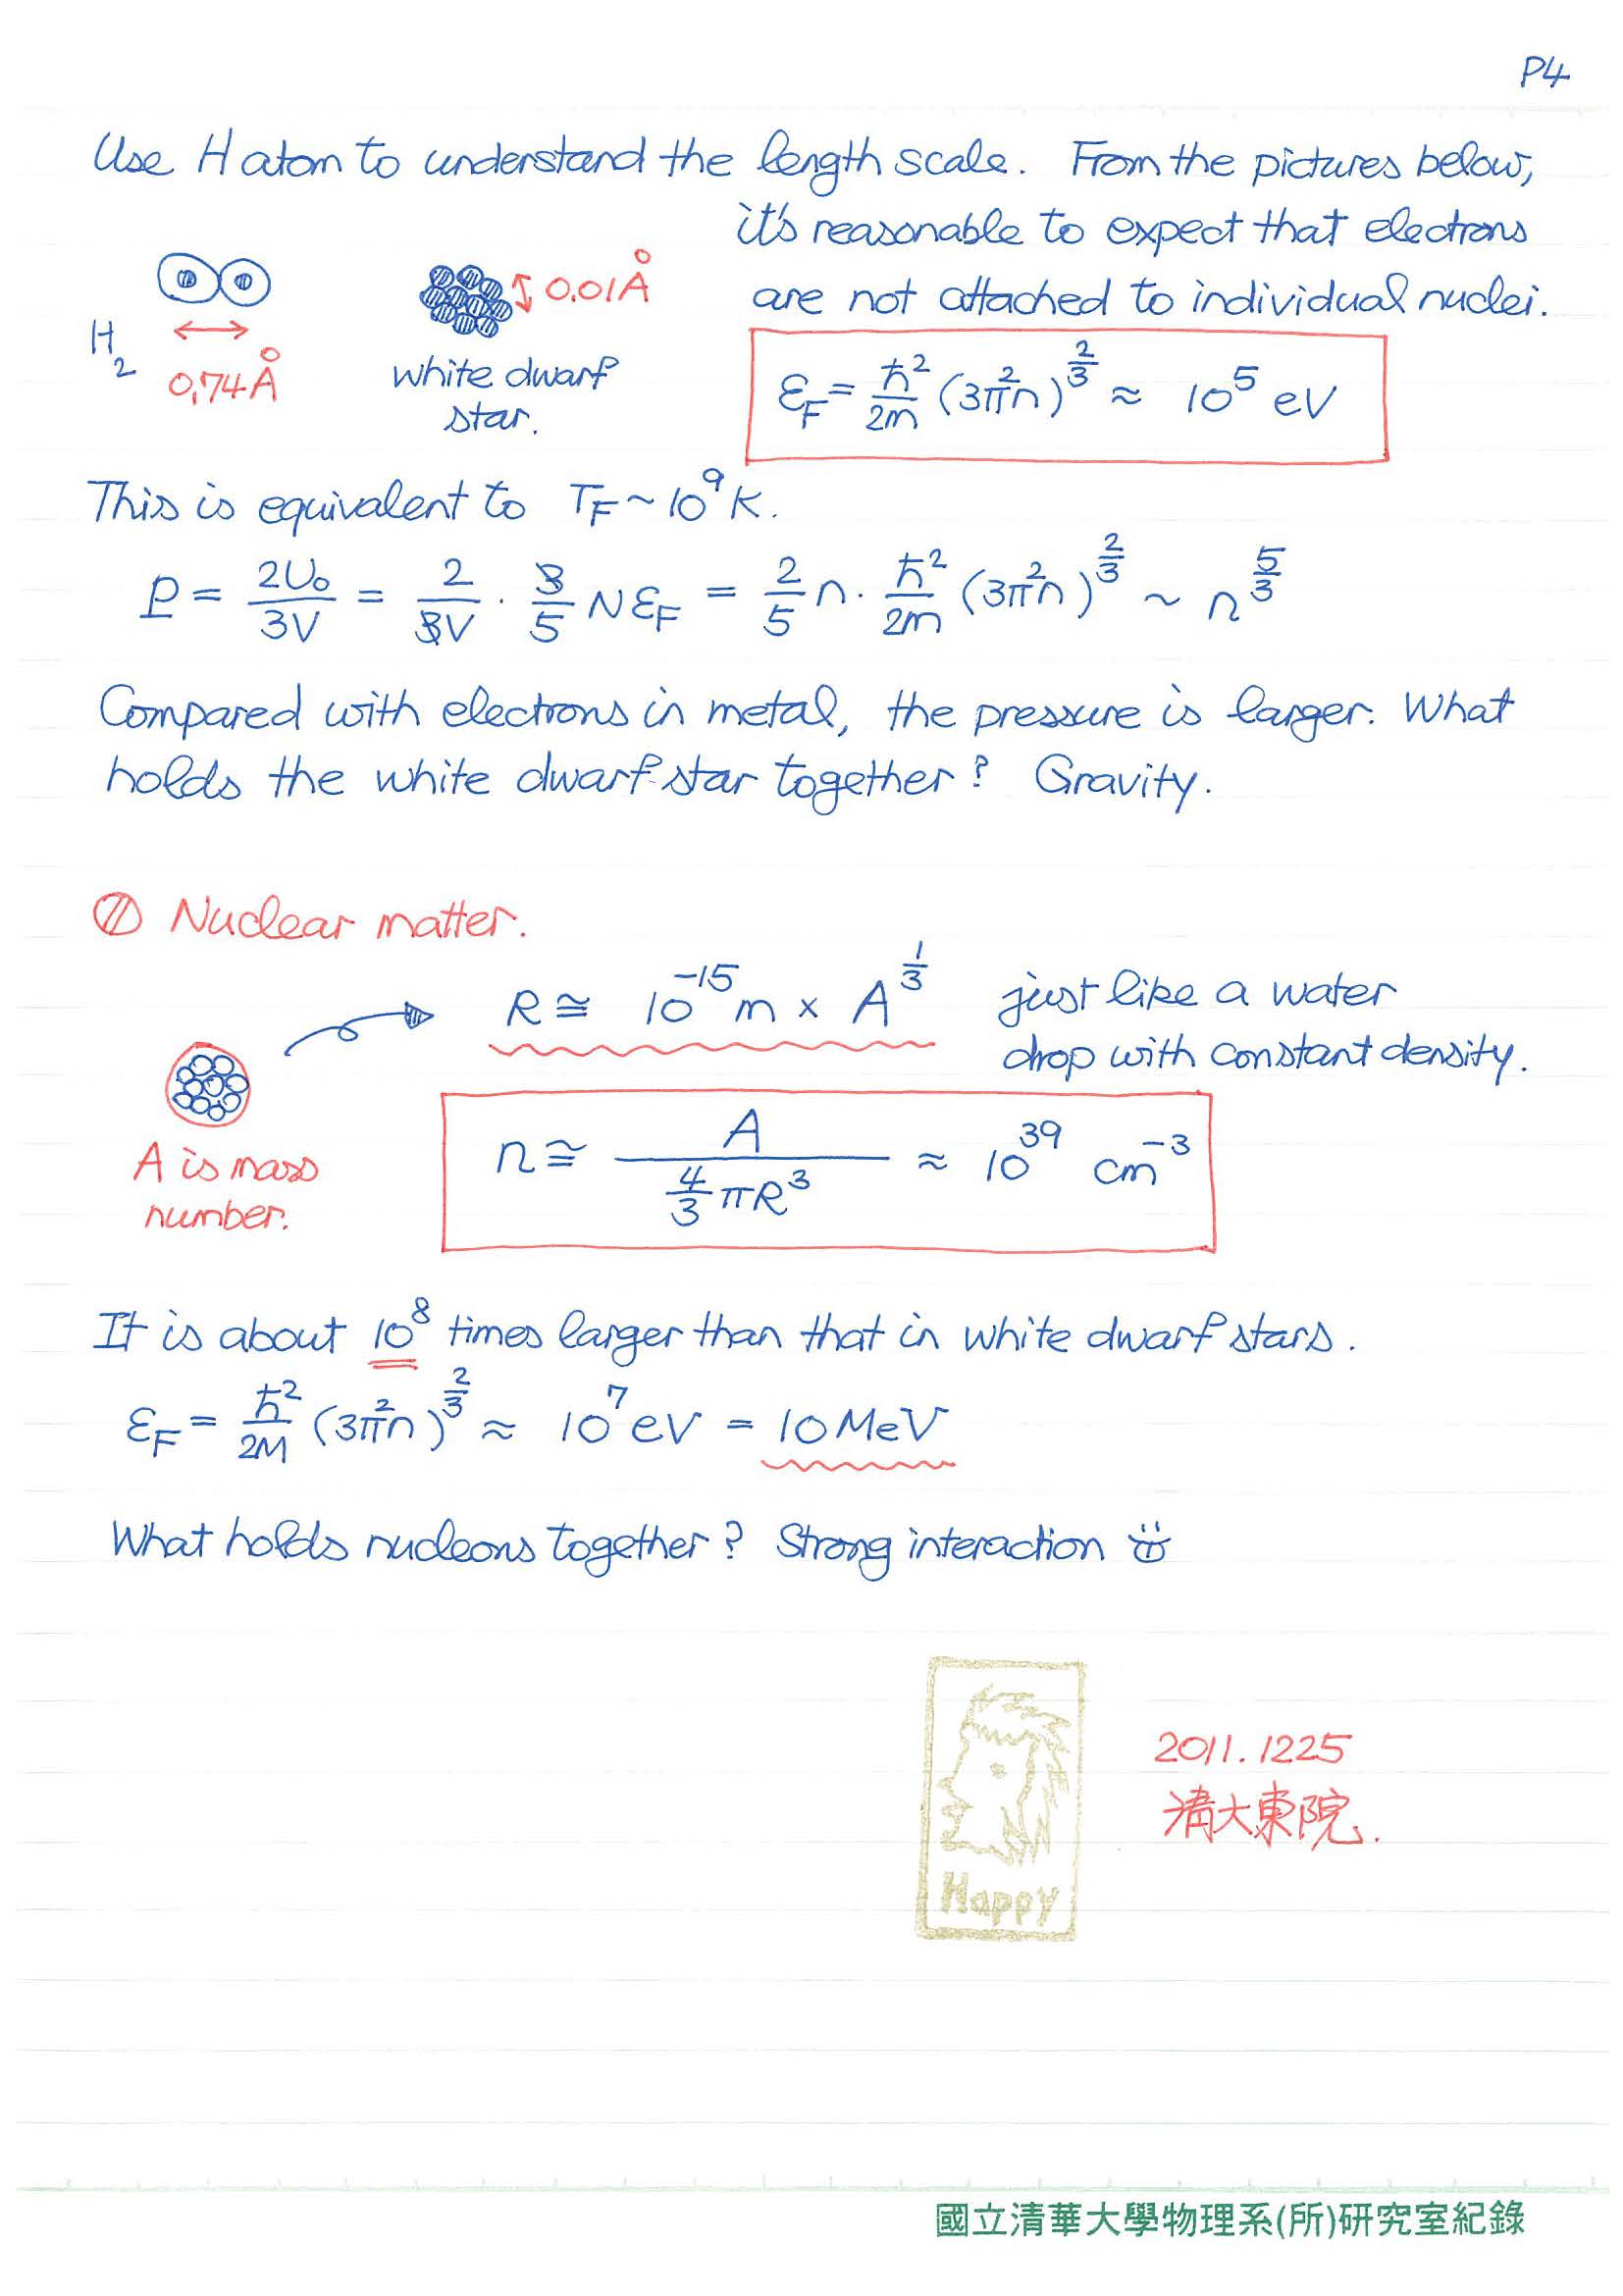 P4
Use H atom to understand the length scale. From the pictures below,
it's reasonable to expect that electrons
are not attached to individual nuclei.
H₂
0.74Å
0.01Å
white dwarf
star.
ε_F = ħ²/2m (3π²n)^(2/3) ≈ 10⁵ eV
This is equivalent to T_F ~ 10⁹ K.
P = 2U₀/3V = 2/3V · 3/5 Nε_F = 2/5 n · ħ²/2m (3π²n)^(2/3) ~ n^(5/3)
Compared with electrons in metal, the pressure is larger. What
holds the white dwarf star together? Gravity.
Nuclear matter.
R ≅ 10⁻¹⁵ m × A^(1/3)
just like a water
drop with constant density.
A is mass
number.
n ≅ A / (4/3 πR³) ≈ 10³⁹ cm⁻³
It is about 10⁸ times larger than that in white dwarf stars.
ε_F = ħ²/2M (3π²n)^(2/3) ≈ 10⁷ eV = 10 MeV
What holds nucleons together? Strong interaction
Happy
2011.1225
清大東院.
國立清華大學物理系(所)研究室紀錄